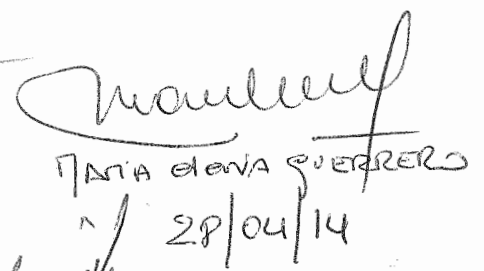 MARIA elena GUERRERO
28/04/14